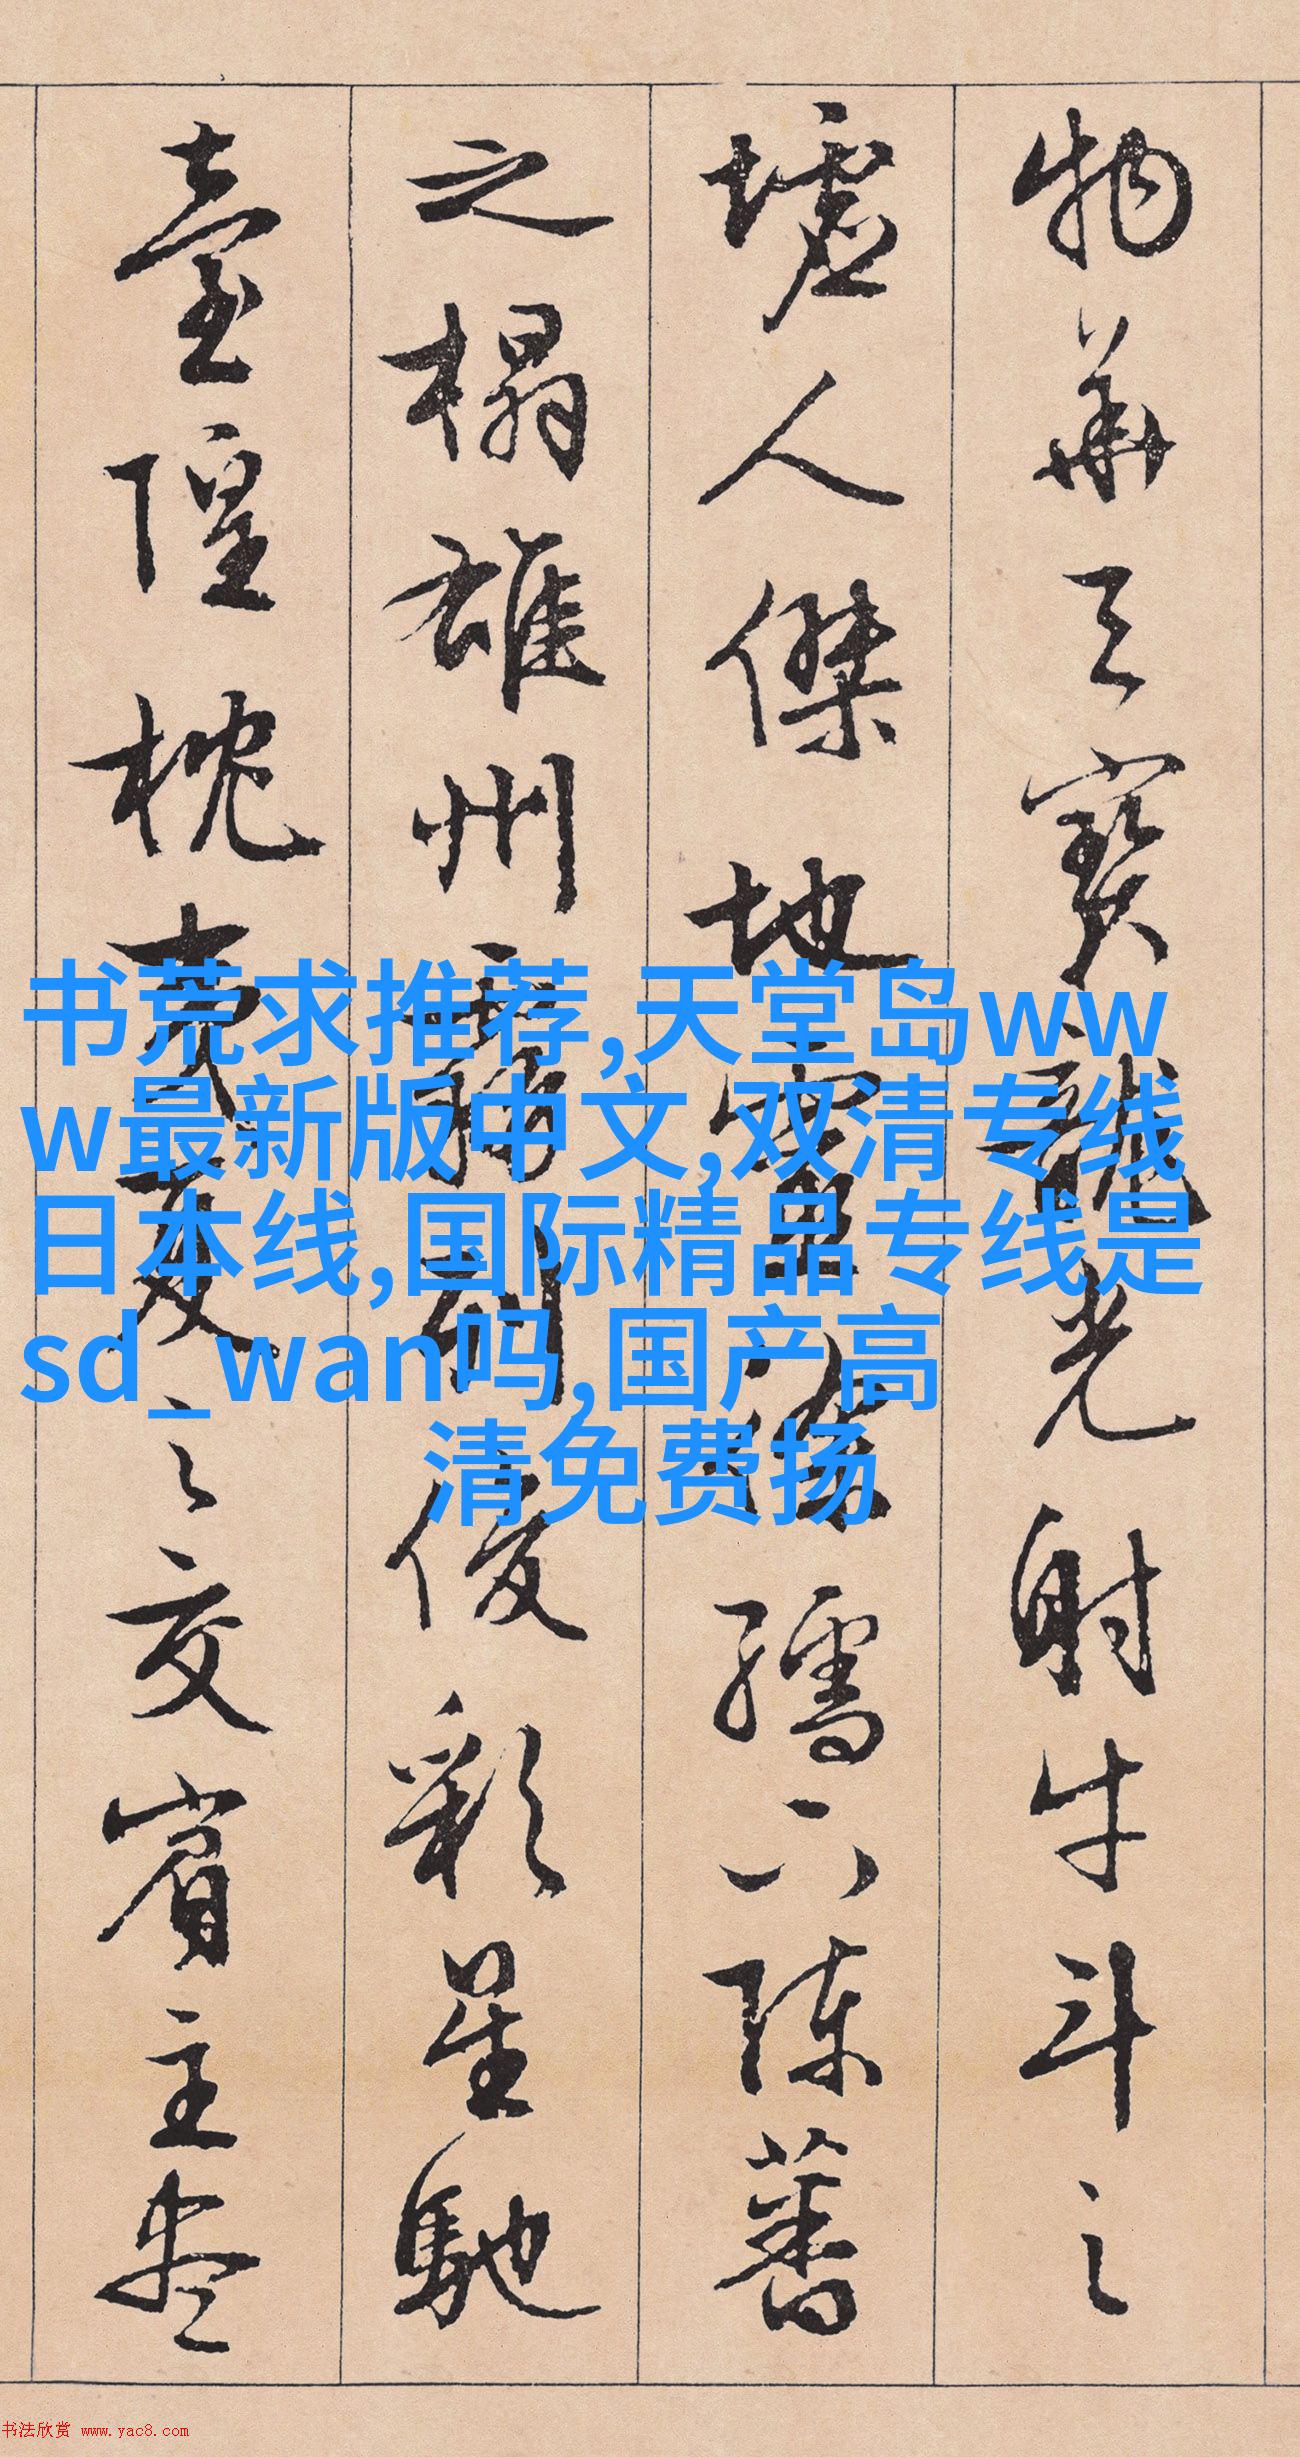 物華天寶龍光射牛斗之
墟人傑地靈徐孺下陳蕃
之榻雄州霧列俊彩星馳
臺隍枕夷夏之交賓主盡
书荒求推荐,天堂岛ww
w最新版中文,双清专线
日本线,国际精品专线是
sd_wan吗,国产高
清免费扬
书法欣赏 www.yac8.com